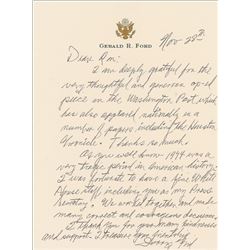 GERALD R. FORD
Nov 28th
Dear Ron:
I am deeply grateful for the
very thoughtful and generous op-ed
piece in the Washington Post, which
has also appeared nationally in a
number of papers, including the Houston
Chronicle. Thanks so much.
As you well know 1974 was a
very tragic period in American history.
I was fortunate to have a fine White
House staff including you as my Press
Secretary. We worked together, and made
many correct and courageous decisions.
I thank you for your many kindnesses
and support. I treasure your friendship.
Jerry Ford